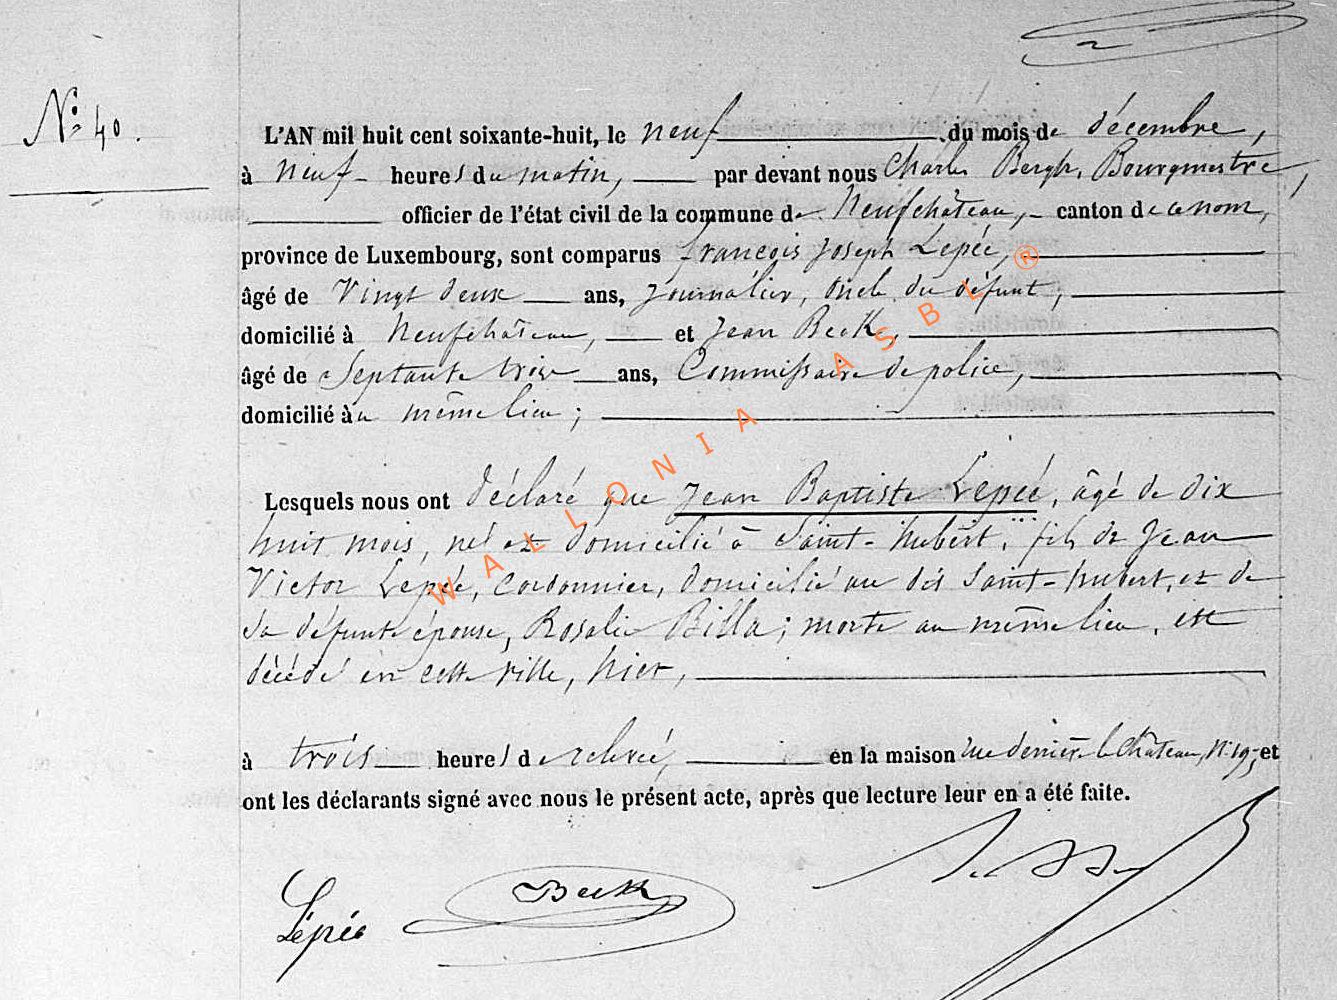 N° 40.
L'AN mil huit cent soixante-huit, le neuf du mois de décembre,
à neuf heures du matin, par devant nous Charles Bergh, Bourgmestre,
officier de l'état civil de la commune de Neufchâteau, canton de ce nom,
province de Luxembourg, sont comparus François Joseph Lepée,
âgé de Vingt deux ans, journalier, oncle du défunt,
domicilié à Neufchâteau, et Jean Beck,
âgé de Septante trois ans, Commissaire de police,
domicilié au même lieu;
Lesquels nous ont déclaré que Jean Baptiste Lepée, âgé de dix
huit mois, né et domicilié à Saint-hubert, fils de Jean
Victor Lépée, cordonnier, domicilié au dit Saint-hubert, et de
sa défunte épouse, Rosalie Billa; morte au même lieu, est
décédé en cette ville, hier,
à trois heures de relevée, en la maison rue derrière le Château, N° 19, et
ont les déclarants signé avec nous le présent acte, après que lecture leur en a été faite.
Lépée Beck
WALLONIA ASBL ®